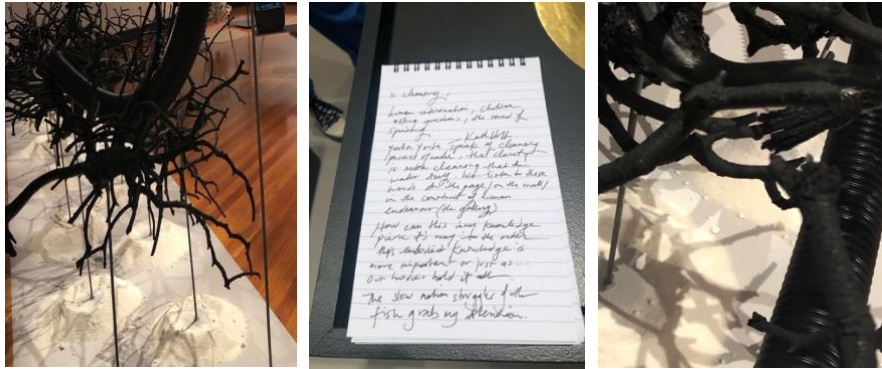 is cleansing,
human intervention, children
asking questions, the sound of
speaking
Yorta Yorta, speak of cleansing
power of water, that clarity
is more cleansing that the
water itself.
words the page/on the walls/
in the construct of human
endeavour (the gallery)
How can this inner knowledge
pierce it's way to the outer
this embodied knowledge is
more important or just as ...
our bodies hold it all
The slow motion struggle of the
fish grabs my attention.